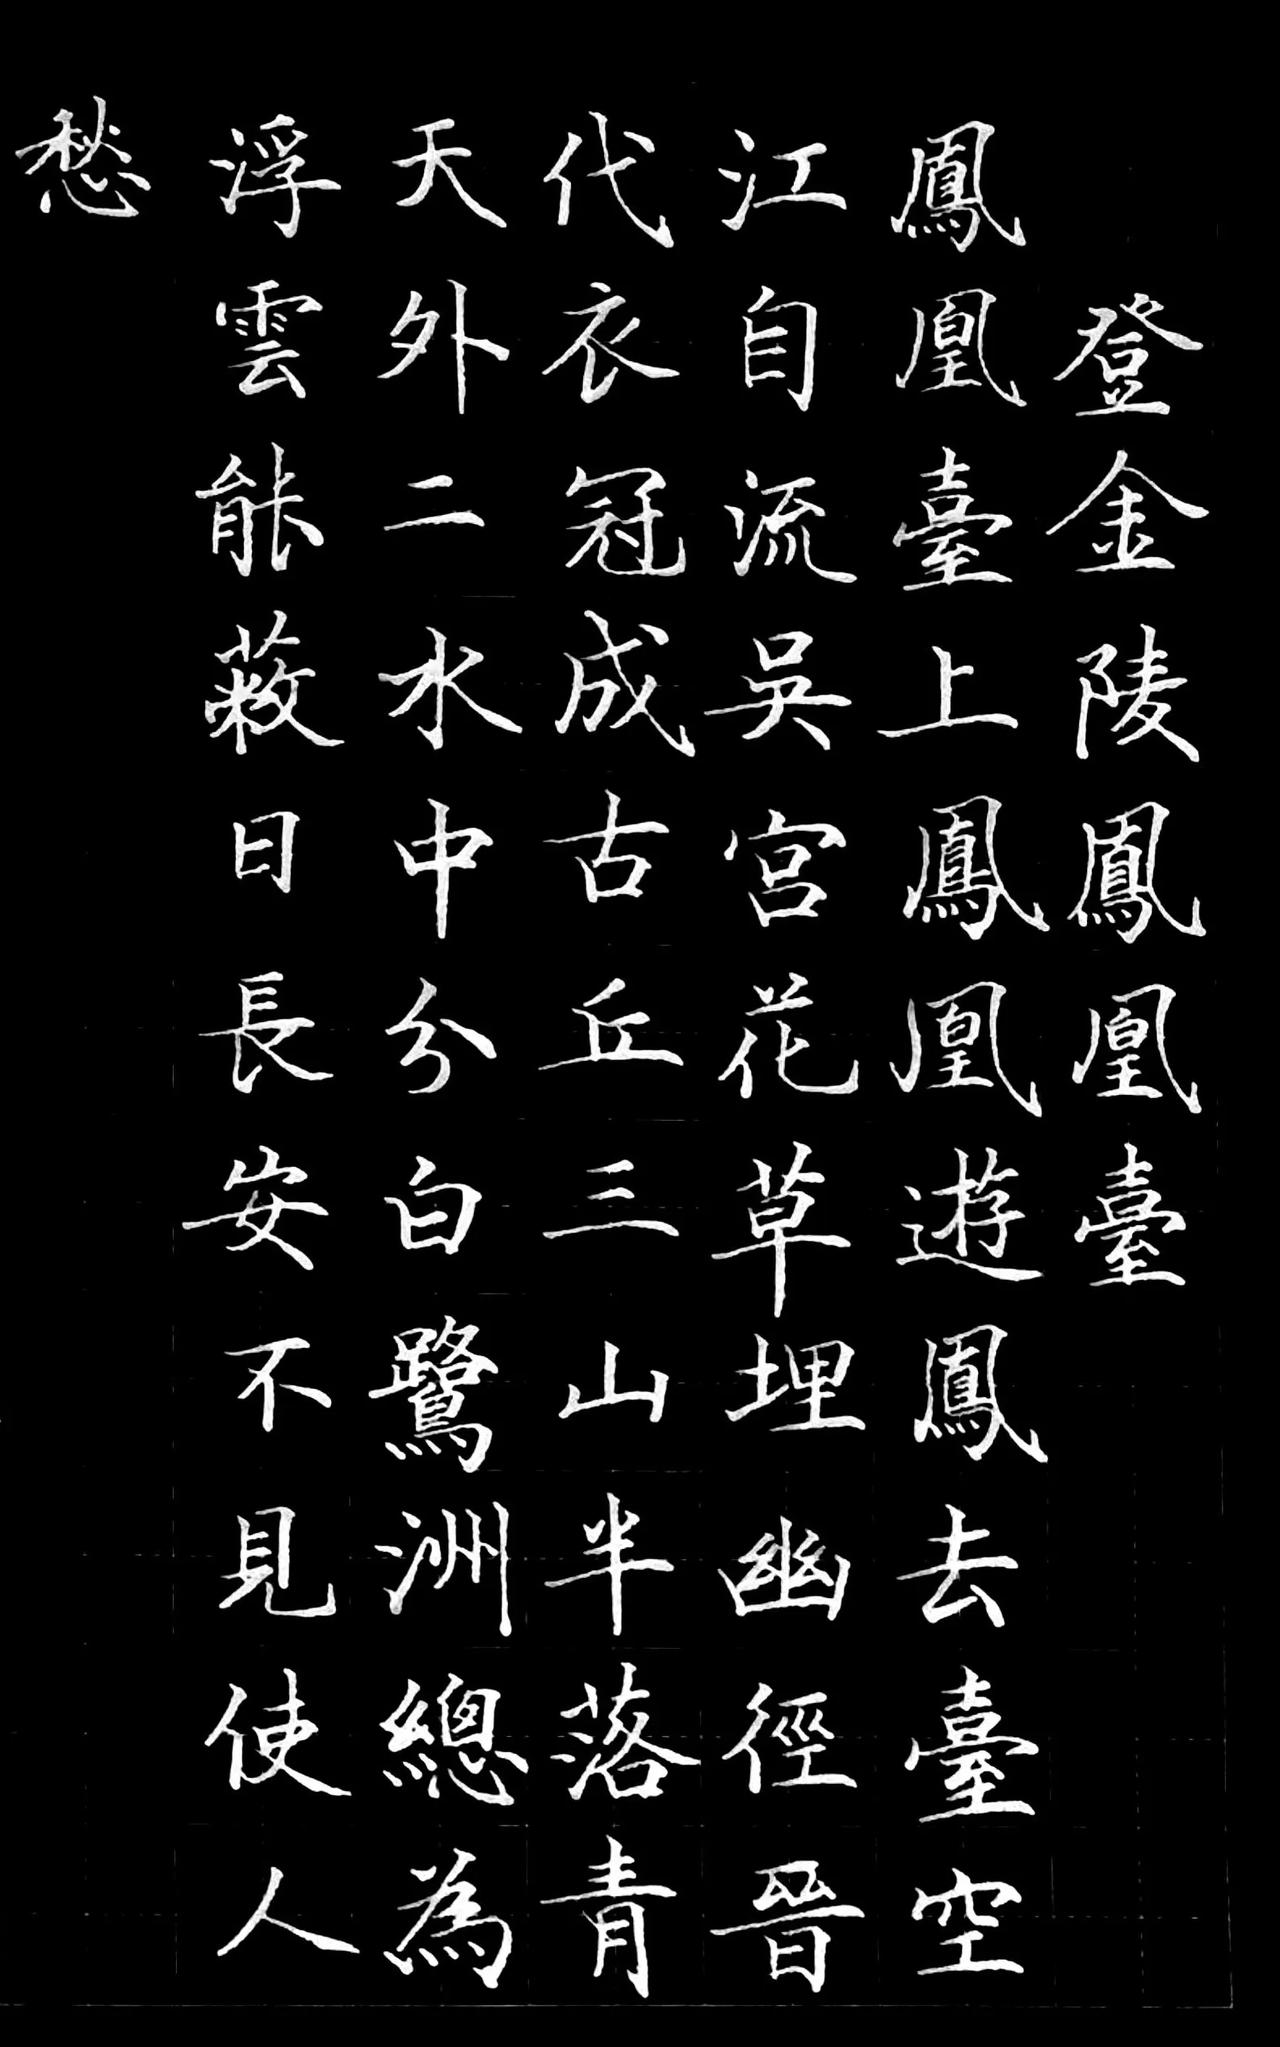 登金陵鳳凰臺
鳳凰臺上鳳凰遊鳳去臺空
江自流吳宮花草埋幽徑晉
代衣冠成古丘三山半落青
天外二水中分白鷺洲總為
浮雲能蔽日長安不見使人
愁